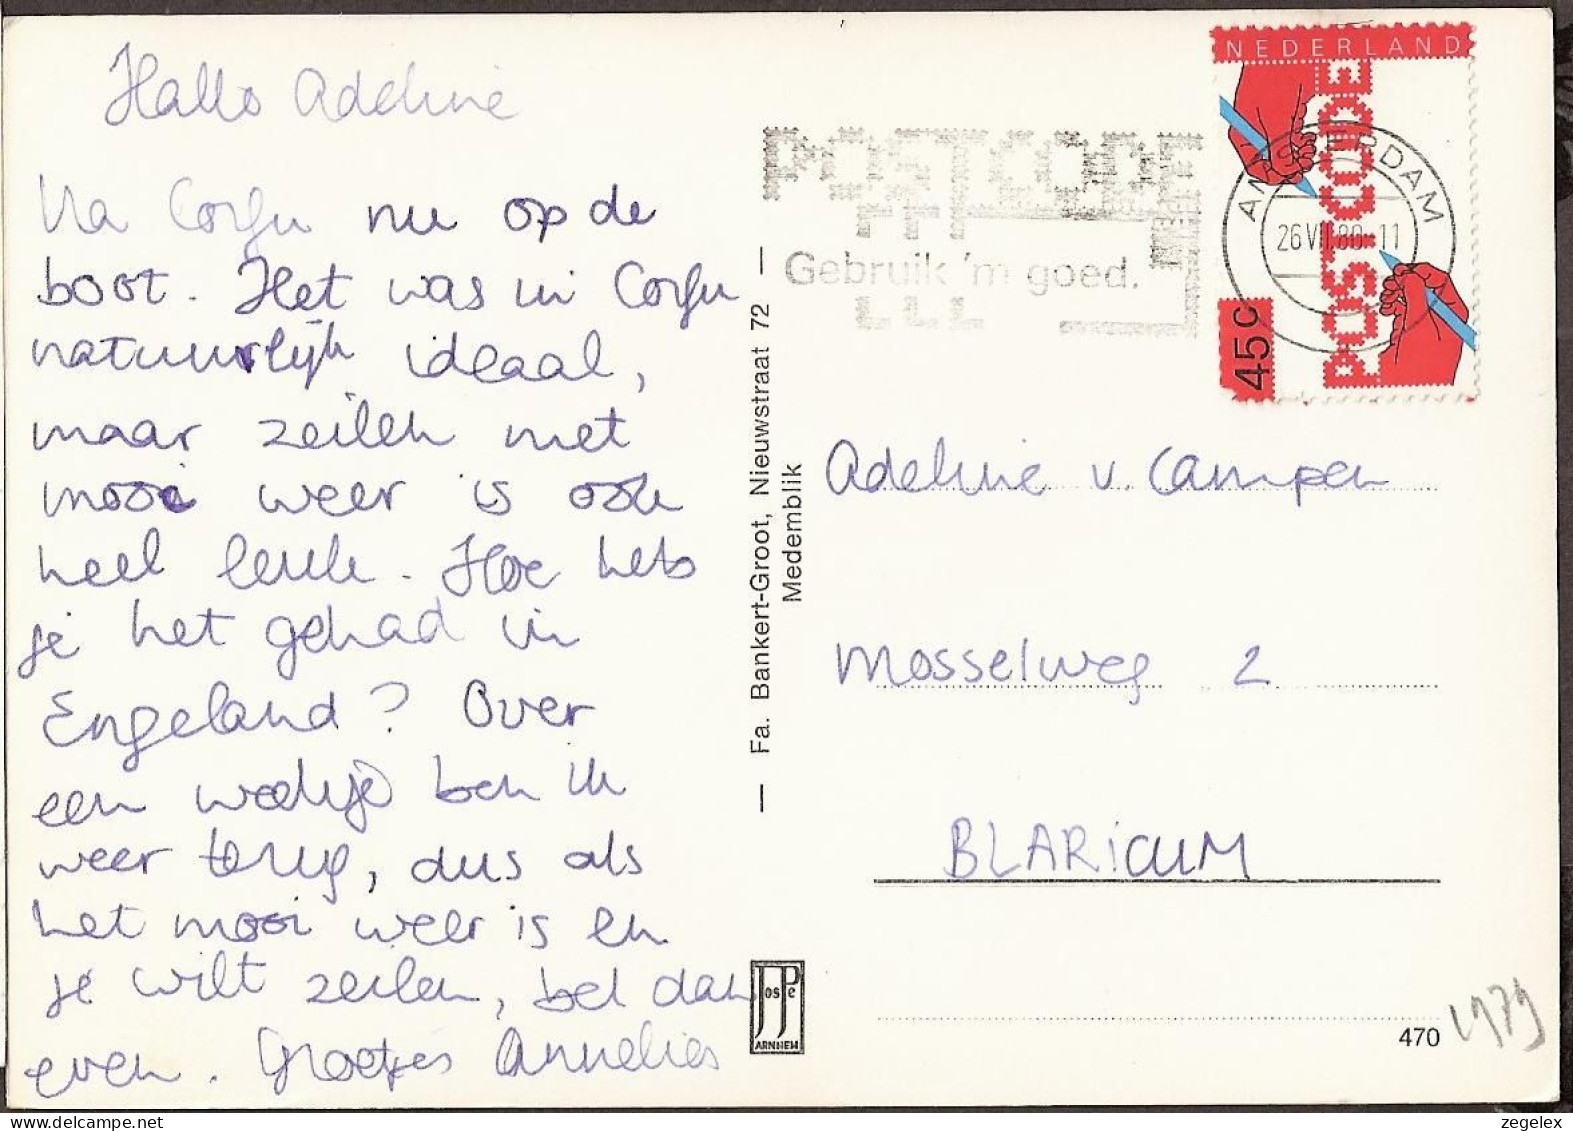 Hallo Adeline
Na Corfu nu op de
boot. Het was in Corfu
natuurlijk ideaal,
maar zeilen met
mooi weer is ook
heel leuk. Hoe heb
je het gehad in
Engeland? Over
een weekje ben ik
weer terug, dus als
het mooi weer is en
je wilt zeilen, bel dan
even. Groetjes Annelies
Fa. Bankert-Groot, Nieuwstraat 72
Medemblik
Jos Pe
ARNHEM
POSTCODE
Gebruik 'm goed.
NEDERLAND
POSTCODE
45c
AMSTERDAM
26 VII 80-11
Adeline v. Campen
Mosselweg 2
BLARICUM
470
1979
zegelex